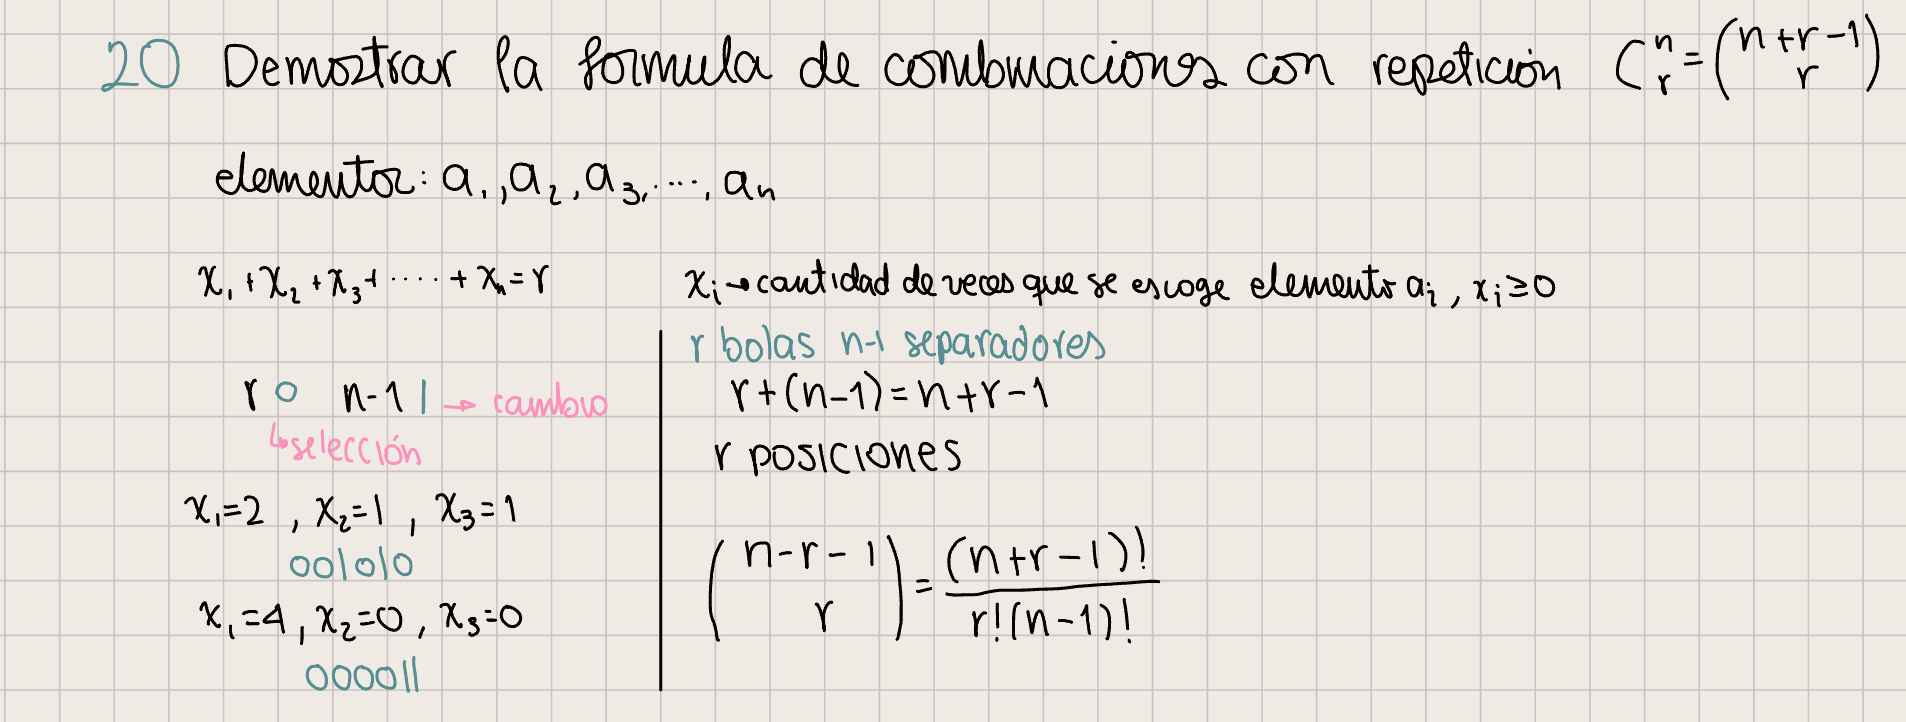 20 Demostrar la formula de combinaciones con repetición C^n_r = (n+r-1 / r)
elementos: a₁, a₂, a₃, ..., aₙ
x₁ + x₂ + x₃ + ..... + xₙ = r
xᵢ → cantidad de veces que se escoge elemento aᵢ, xᵢ ≥ 0
r o n-1 | → cambio
↳ selección
x₁=2, x₂=1, x₃=1
oo|o|o
x₁=4, x₂=0, x₃=0
oooo||
r bolas n-1 separadores
r+(n-1)=n+r-1
r posiciones
(n-r-1 / r) = (n+r-1)! / r!(n-1)!